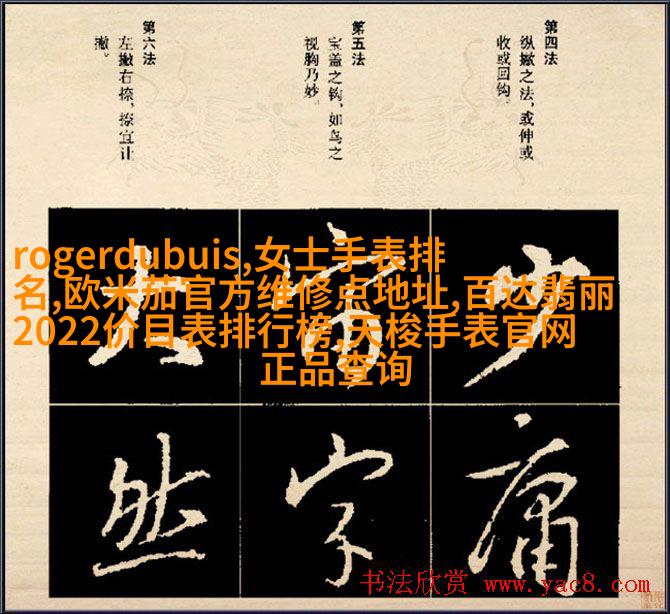 第四法
纵撇之法，或伸或
收或回钩。
第五法
宝盖之钩，如鸟之
视胸乃妙。
第六法
左撇右捺，捺宜让
撇。
rogerdubuis,女士手表排
名,欧米茄官方维修点地址,百达翡丽
2022价目表排行榜,天梭手表官网
正品查询
少
庸
字
然
书法欣赏 www.yac8.com